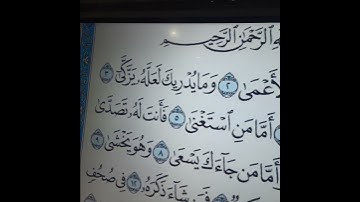 ـهِ ٱلرَّحْمَٰنِ ٱلرَّحِيمِ
لْأَعْمَىٰ ٢ وَمَا يُدْرِيكَ لَعَلَّهُۥ يَزَّكَّىٰ ٣
أَمَّا مَنِ ٱسْتَغْنَىٰ ٥ فَأَنتَ لَهُۥ تَصَدَّىٰ
أَمَّا مَن جَآءَكَ يَسْعَىٰ ٨ وَهُوَ يَخْشَىٰ ٩
فَمَن شَآءَ ذَكَرَهُۥ ١٢ فِى صُحُفٍ